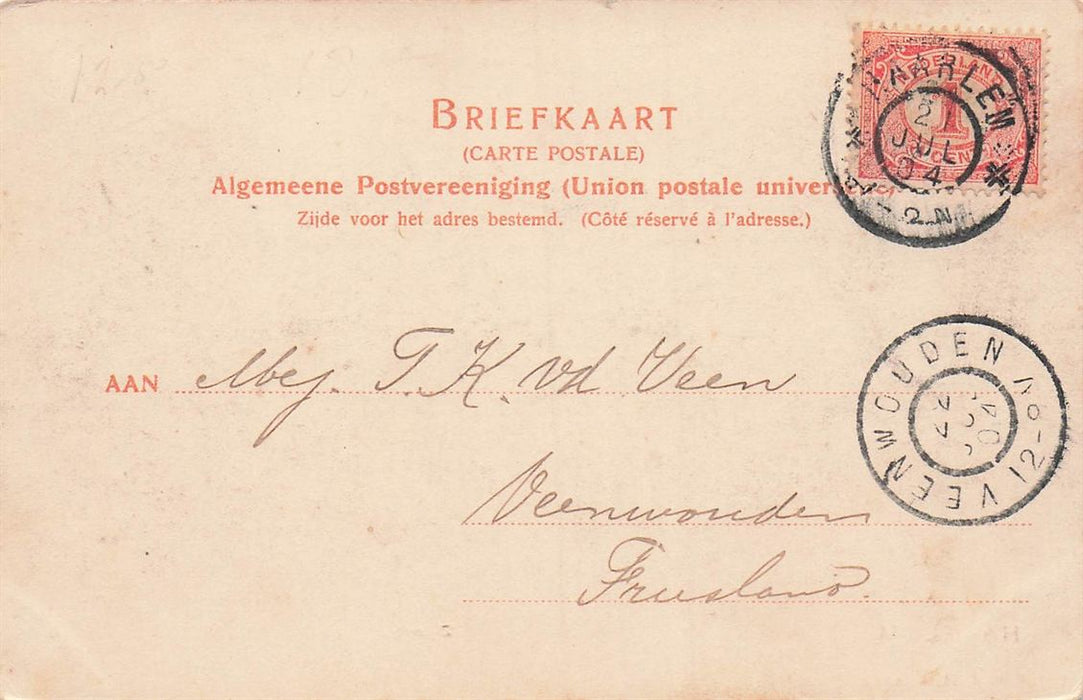 BRIEFKAART
(CARTE POSTALE)
Algemeene Postvereeniging (Union postale univers
Zijde voor het adres bestemd. (Côté réservé à l'adresse.)
HAARLEM
2
JUL
04
2 N
NEDERLAND
1
CENT
AAN Mej. T. K. vd Veen
Veenwouden
Friesland.
VEENWOUDEN
12-8 V
04